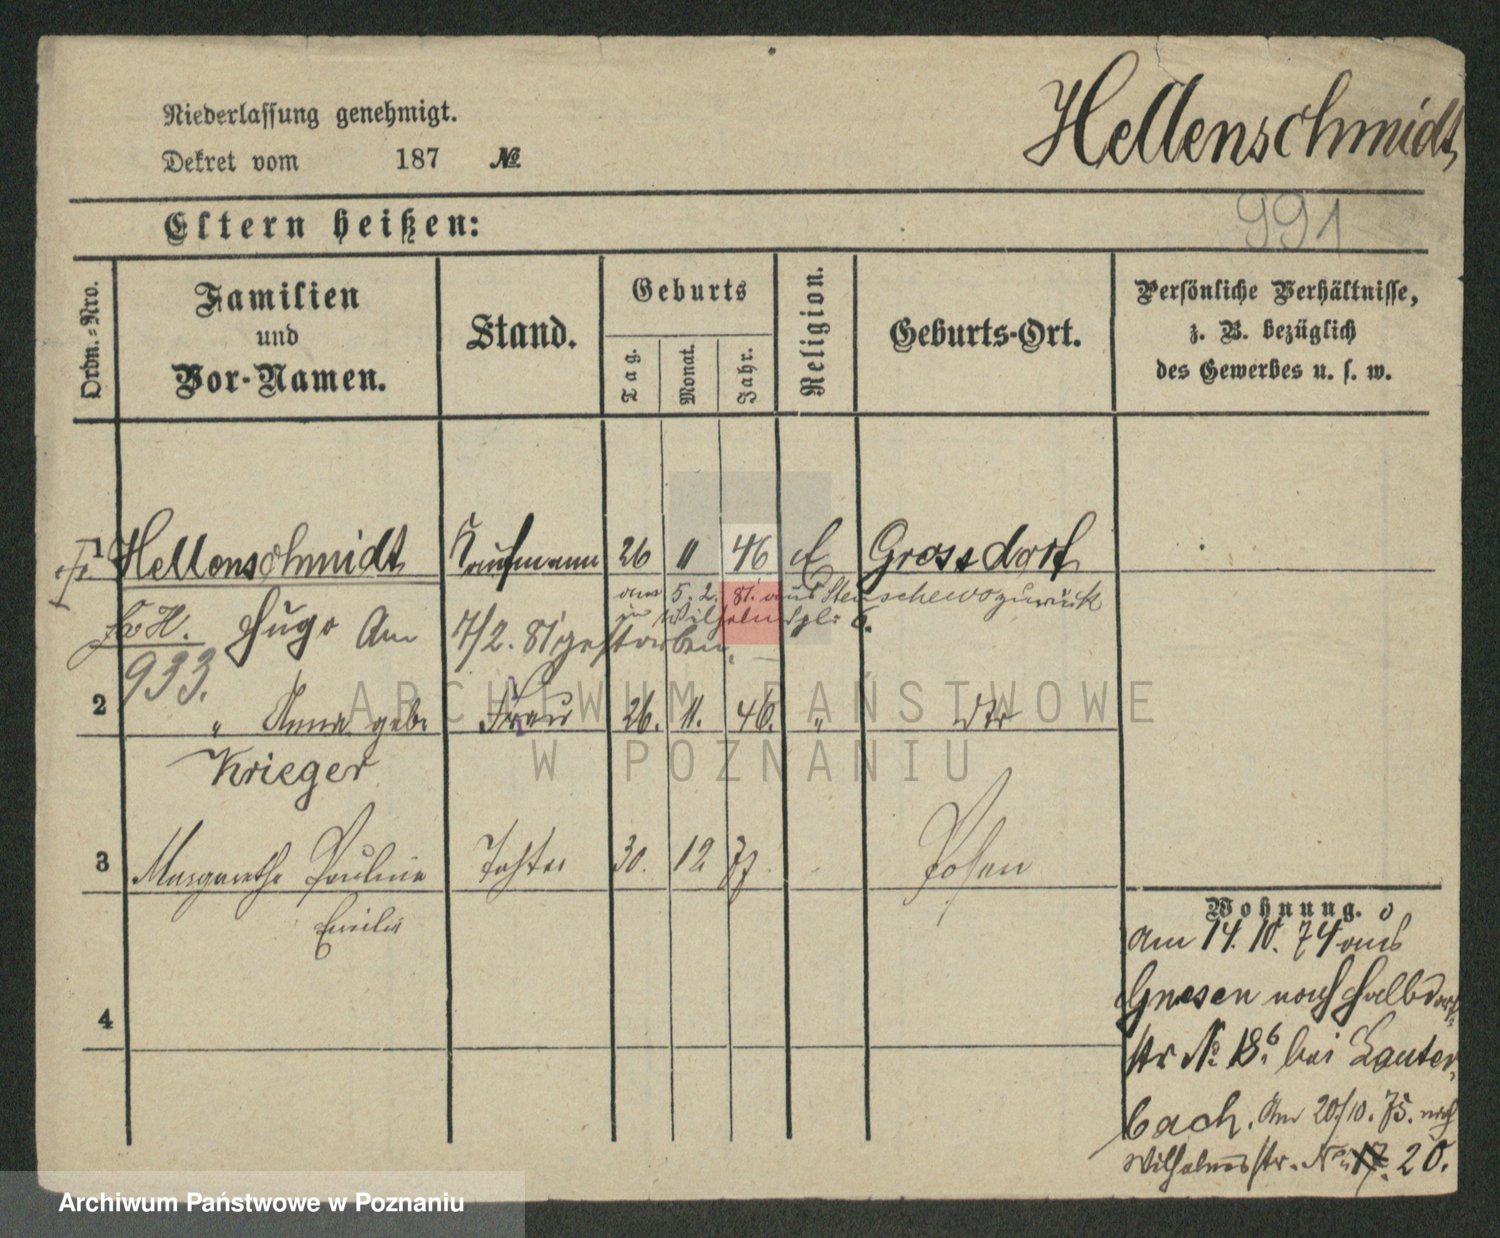 Niederlassung genehmigt.
Dekret vom 187 №
Hellenschmidt,
Eltern heißen:
991
Ordn.-Nro.
Familien
und
Vor-Namen.
Stand.
Geburts
Tag.
Monat.
Jahr.
Religion.
Geburts-Ort.
Persönliche Verhältnisse,
z. B. bezüglich
des Gewerbes u. s. w.
1 Hellenschmidt, Kaufmann 26 11 46 E Grossdorf
am 5. 2. 81. aus Stenschewo zurück
in Wilhelmspl: 6.
Hugo Am 7/2. 81 gestorben.
933.
2 " Anna geb. Frau 26. 11. 46. " dtr
Krieger
3 Margarethe Pauline Tochter 30. 12 77 Posen
Emilie
4
Wohnung.
am 14. 10. 74 aus
Gnesen nach Halbdorf-
str № 18. bei Lauter-
bach. Am 20/10. 75. nach
Wilhelmsstr. No 17. 20.
ARCHIWUM PAŃSTWOWE
W POZNANIU
Archiwum Państwowe w Poznaniu